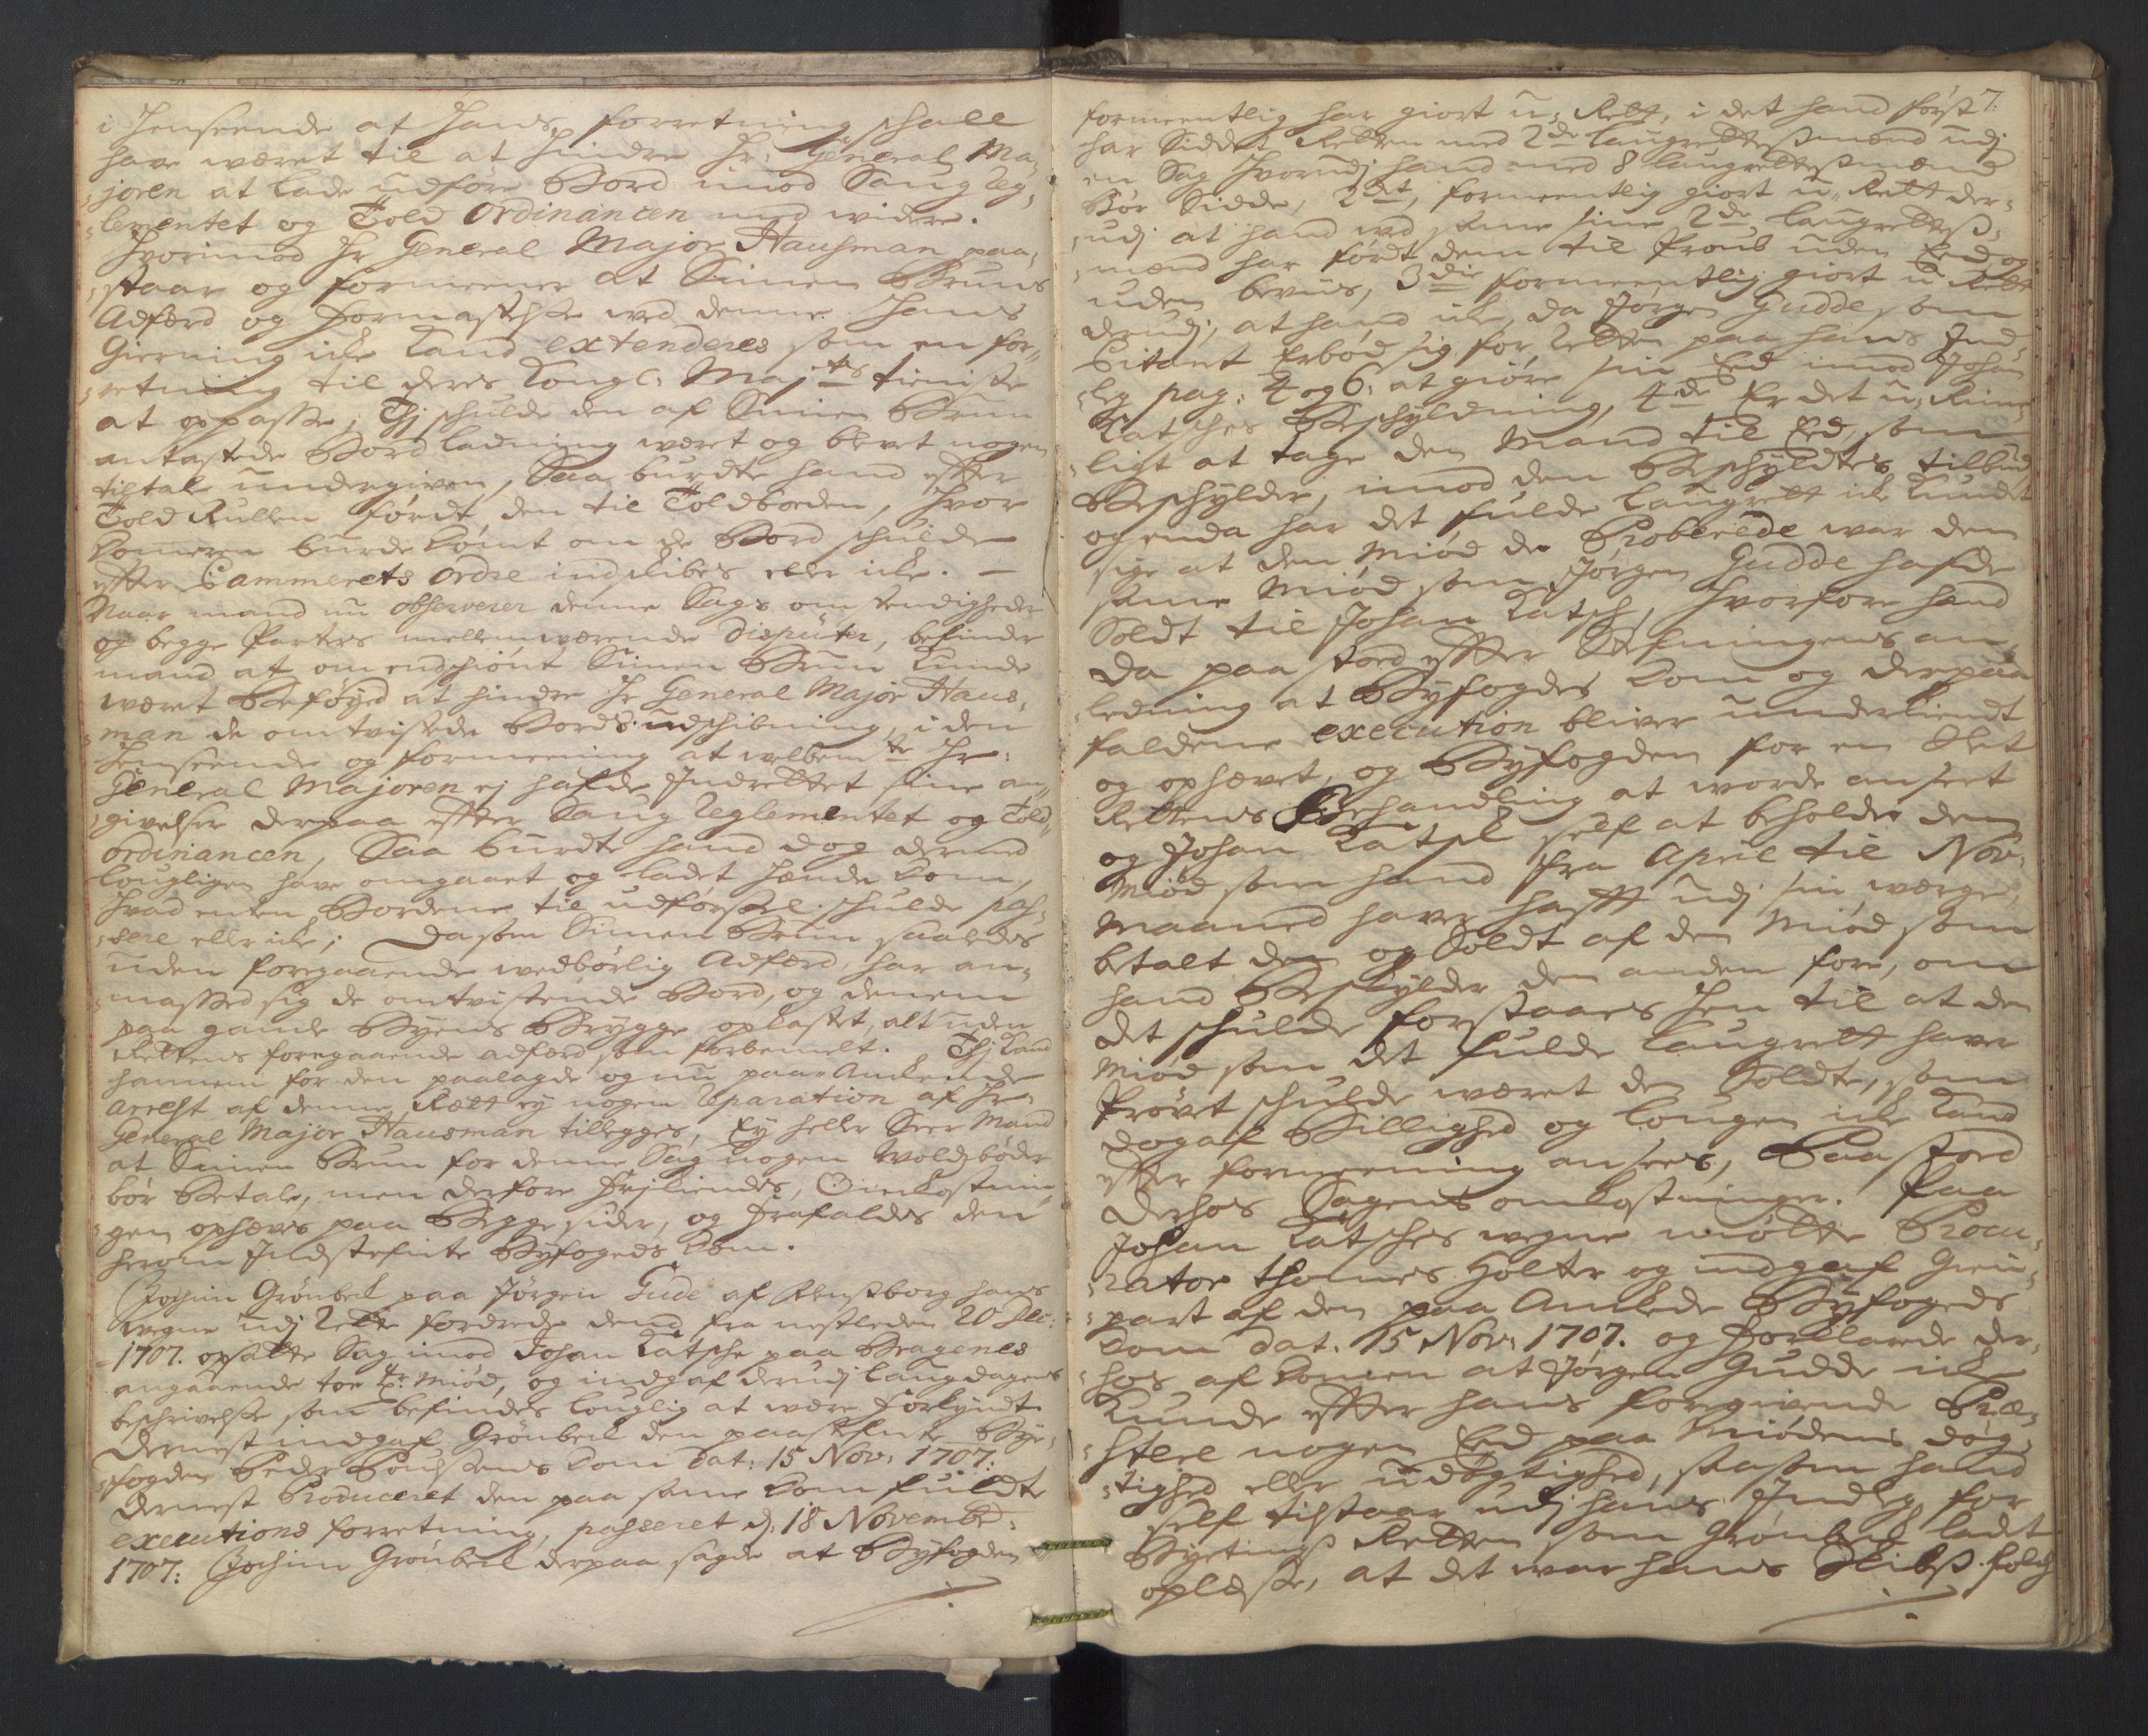 i Henseende at Hans forretning schall
have wæret til at hindre Hr: General Ma-
joren at lade udføre Bord imod Saug Reg-
lementet og Told Ordinancen med widere.
Hvorimod Hr General Major Hausman paa-
staar og formeener at Simen Bruns
Adfærd og Formastelse wed denne Hans
Gierning icke kand extenderes som en for-
retning til deris Kongl: Majts tieniste
at oppasse; Thj schulde den af Simen Brun
antastede Bordladning wæret og blevet nogen
tiltale undergiven, Saa burdte hand efter
Told Rullen ført den til Toldboeden, hvor
burde komt om de Bord schulde
efter Cammerets Ordre indskibes eller icke. -
Naar mand nu observerer denne Sags omstendigheder
og begge Parters mellemwærende Disputer, befinder
mand at omendschiønt Simen Brun kunde
wæret Beføyed at hindre Hr General Major Haus-
man de omtvistede Bords udschibning, i den
Henseende og formeening at welbemte Hr:
General Majoren ej hafde Indrettet sine an-
givelser derpaa efter Saug Reglementet og Told
Ordinancen, Saa burdte hand dog dermed
lougligen have omgaaet og ladet kiende Dom,
hvad enten Bordene til udførsel schulde pas-
sere eller icke; Da som Simen Brun saaledes
uden foregaaende wedbørlig Adfærd har an-
massed sig de omtvistende Bord, og dennem
paa gamle Byens Brygge oplastet, alt uden
Rettens foregaaende adfærd som forbemelt. Thj kand
hannem for den paalagde og nu paa Anckende
arrest af denne Rætt ey nogen Reparation af Hr
General Major Hausman tillegges, Ey heller Seer Mand
at Simen Brun for denne Sag nogen Woldsbøder
bør Betale, men derfore Frikiendes, Omkostnin-
gen ophæves paa Begge sider, og Frafaldes den
herom Indstefnte Byfogeds Dom.
Jochim Grønbeck paa Jørgen Gude af Flensborg hans
wegne udj Rette fordrede dend fra nestleden 20 Dec:
1707. opsatte Sag imod Johan Katsche paa Bragenes
angaaende toe Tr: Miød, og indgaf derudj Laugdagens
beschrivelse som befindes louglig at være Forkyndt
Dernest indgaf Grønbeck den paastefnte Bye-
fogden Peder Poulsens Dom dat: 15 Nov. 1707:
dernest Produceret den paa samme Dom fuldte
executions forretning, passeret d: 18 Novembr:
1707: Jochim Grønbeck derpaa sagde at Byfogden
7.
formeentlig har giort u-Rett, i det hand først
har Siddet Retten med 2de laugrettesmænd udj
en Sag hvorudj hand med 8 laugrettesmænd
Bør Sidde, 2det, formeentlig giort u-Rett der-
udj at hand wed samme sine 2de laugrettes-
mænd har ført dem til Prøve uden Eed og
uden beviis, 3die formeentlig giort u Rett
derudj, at hand icke, da Jørgen Gudde som
Citant Erbød sig for Retten paa hans Ind-
leg pag: 4 og 6: at giøre sin Eed imod Johan
Katsches Beschyldning, 4de Er det u-Rime-
ligt at tage den Mand til Eed, som
Beschylder, imod den Beschyldtes tilbud
og enda har det fulde Laugrett icke kundet
sige at den Miød de Proberede war den
samme Miød som Jørgen Gudde hafde
Soldt til Johan Katsch, Hvorfore hand
da paastoed efter Stefningens an-
ledning at Byfogdes Dom og derpaa
faldene execution bliver underkiendt
og ophævet, og Byfogden for en slet
Rettens Behandling at worde anseet
og Johan Katsch self at beholde den
Miød som hand fra April til Nov:
Maaned haver hafft udj sin wærge,
betalt den og Soldt af den Miød som
hand Beskylder den anden fore, om
det schulde forstaaes hen til at den
Miød som det fulde Laugrett haver
Prøvet schulde wæret den Soldte, som
dog af Billighed og Lougen icke kand
efter formeening ansees, Paastoed
derhos Sagens omkostninger. Paa
Johan Katsches wegne møtte Procu-
rator Thomes Holter og indgaf Gien-
part af den paa Anckede Byfogeds
Dom dat. 15 Nov: 1707. og Forklarede der-
hos af Dommen at Jørgen Gudde icke
kunde efter hans foregivende Præ-
stere nogen Eed paa Miødens dyg-
tighed eller udygtighed, saasom hand
self tilstaar udj hans Indleg for
Byetings Retten som Grønbeck ladt
oplæse, at det war hans Skibs-folch